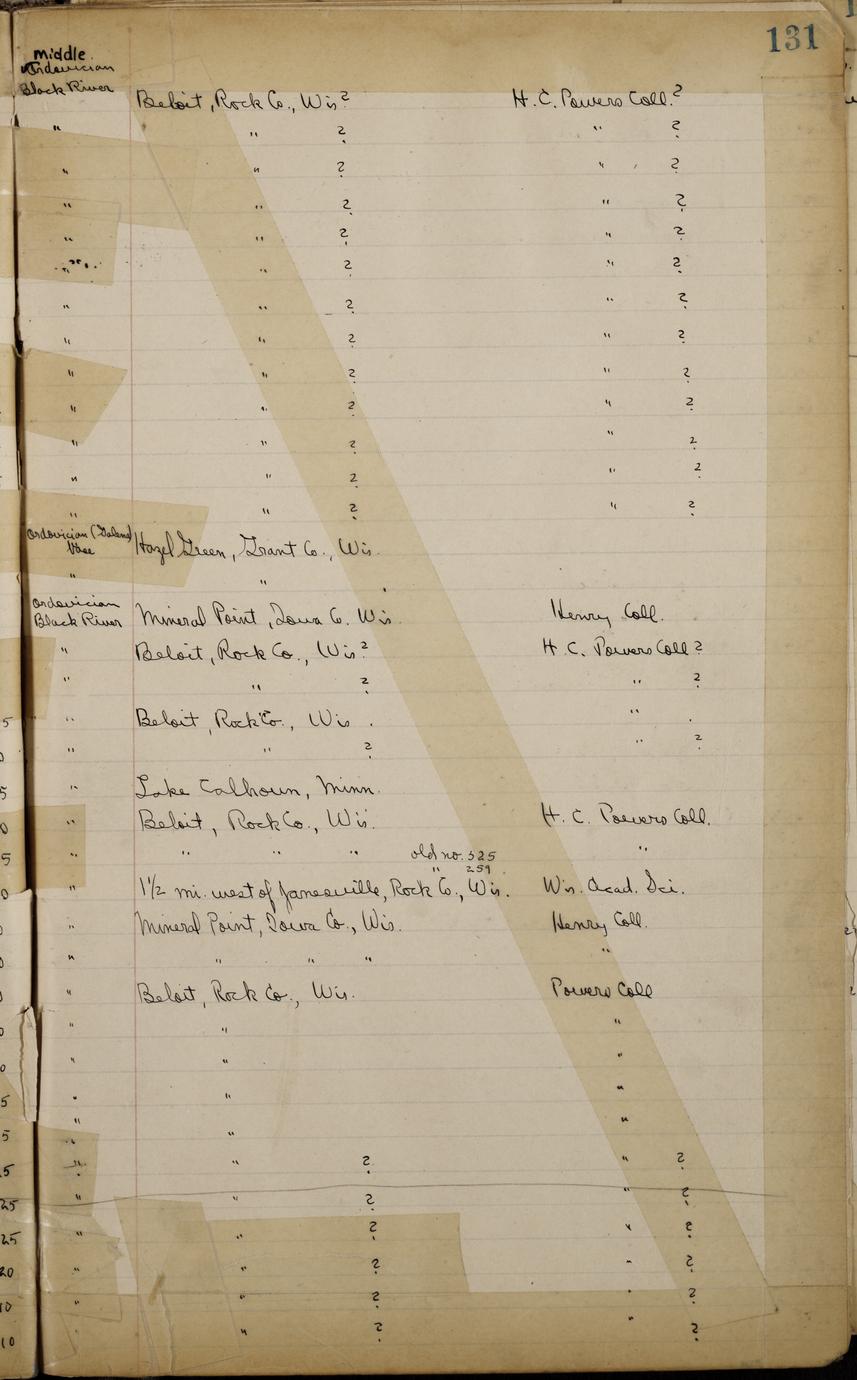 131
middle
Ordovician
Black River Beloit, Rock Co., Wis? H. C. Powers Coll.?
" " ? " ?
" " ? " ?
" " ? " ?
" " ? " ?
" " ? " ?
" " ? " ?
" " ? " ?
" " ? " ?
" " ? " ?
" " ? " ?
" " ? " ?
" " ? " ?
Ordovician (Galena)
Hazel Green, Grant Co., Wis.
" "
Ordovician
Black River Mineral Point, Iowa Co. Wis. Henry Coll.
" Beloit, Rock Co., Wis? H. C. Powers Coll ?
" " ? " ?
5 " Beloit, Rock Co., Wis. "
0 " " ? " ?
5 " Lake Calhoun, Minn.
0 " Beloit, Rock Co., Wis. H. C. Powers Coll.
5 " " " " old no. 525 "
" 259
0 " 1 1/2 mi. west of Janesville, Rock Co., Wis. Wis. Acad. Sci.
" Mineral Point, Iowa Co., Wis. Henry Coll.
0 " " " " "
0 " Beloit, Rock Co., Wis. Powers Coll
0 " " "
0 " " "
5 " " "
5 " " "
5 " " ? " ?
25 " " ? " ?
25 " " ? " ?
20 " " ? " ?
10 " " ? " ?
10 " " ? " ?